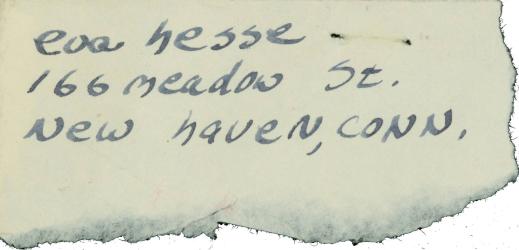 eva hesse
166 meadow St.
New haven, CONN.